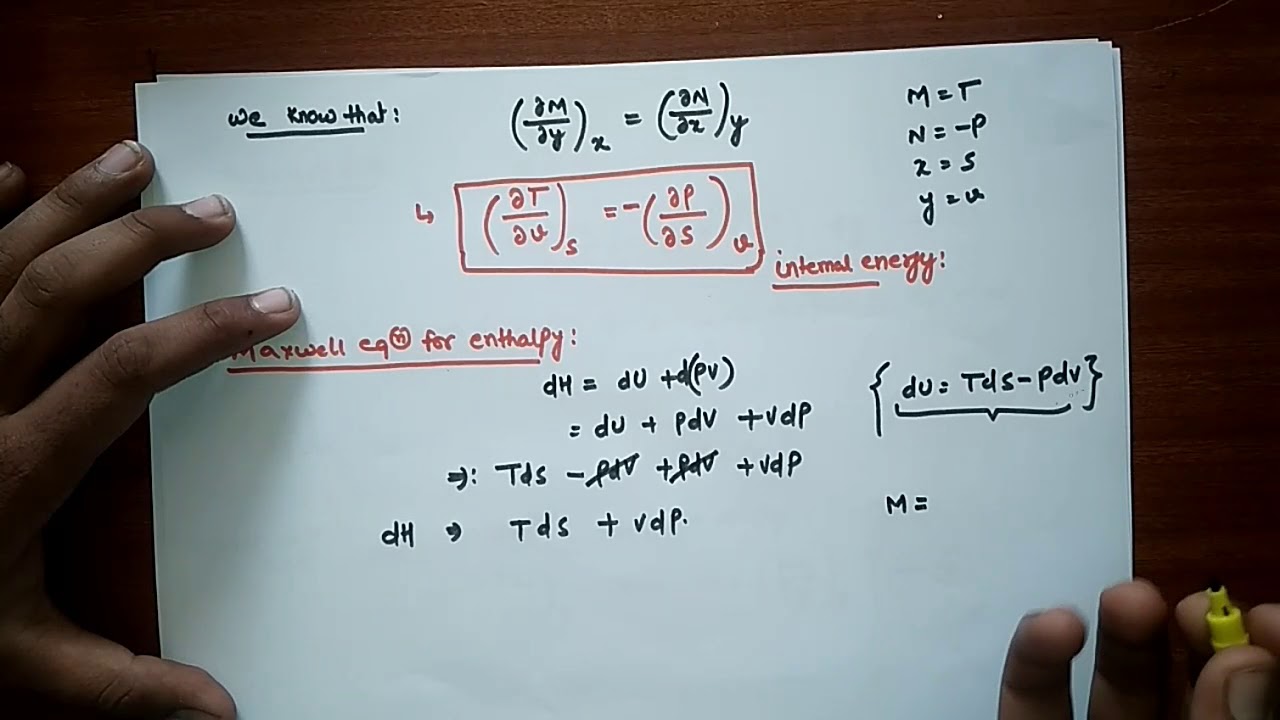 we know that: (∂M/∂y)x = (∂N/∂x)y
M = T
N = -P
x = S
y = v
↳ (∂T/∂v)S = -(∂P/∂S)v
internal energy:
Maxwell eqⁿ for enthalpy:
dH = dU + d(PV)
{dU = Tds - Pdv}
= dU + Pdv + vdP
⇒: Tds - Pdv + Pdv + vdP
M =
dH ⇒ Tds + vdP.